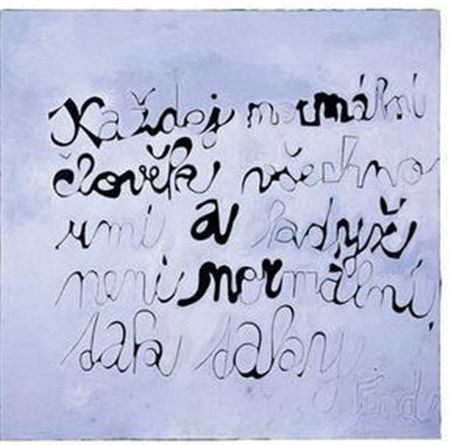 Každej normální
člověk všechno
umí a kadyž
není normální,
tak taky